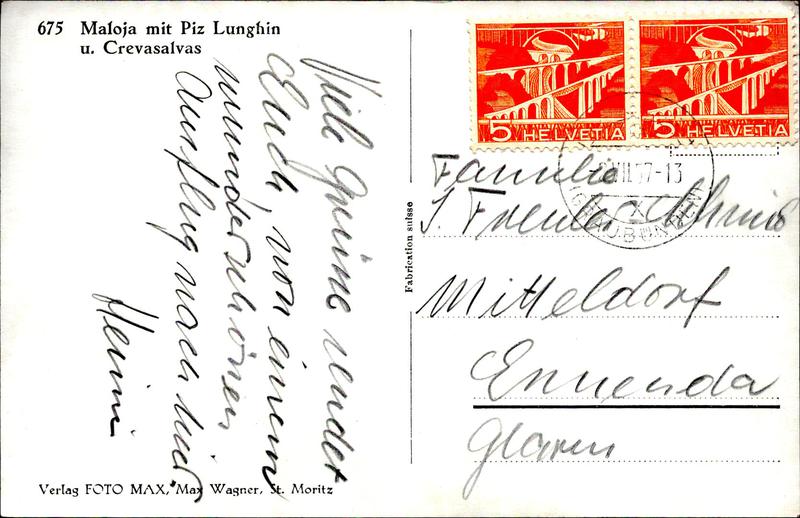 675 Maloja mit Piz Lunghin
u. Crevasalvas
Viele Grüsse sendet
Euch, von einem
wunderschönen
Ausflug nach hier
Heini
Verlag FOTO MAX, Max Wagner, St. Moritz
Fabrication suisse
5 HELVETIA
5 HELVETIA
VII.57-13
(GRAUBÜNDEN)
Familie
J. Freuler
Mitteldorf
Ennenda
Glarus